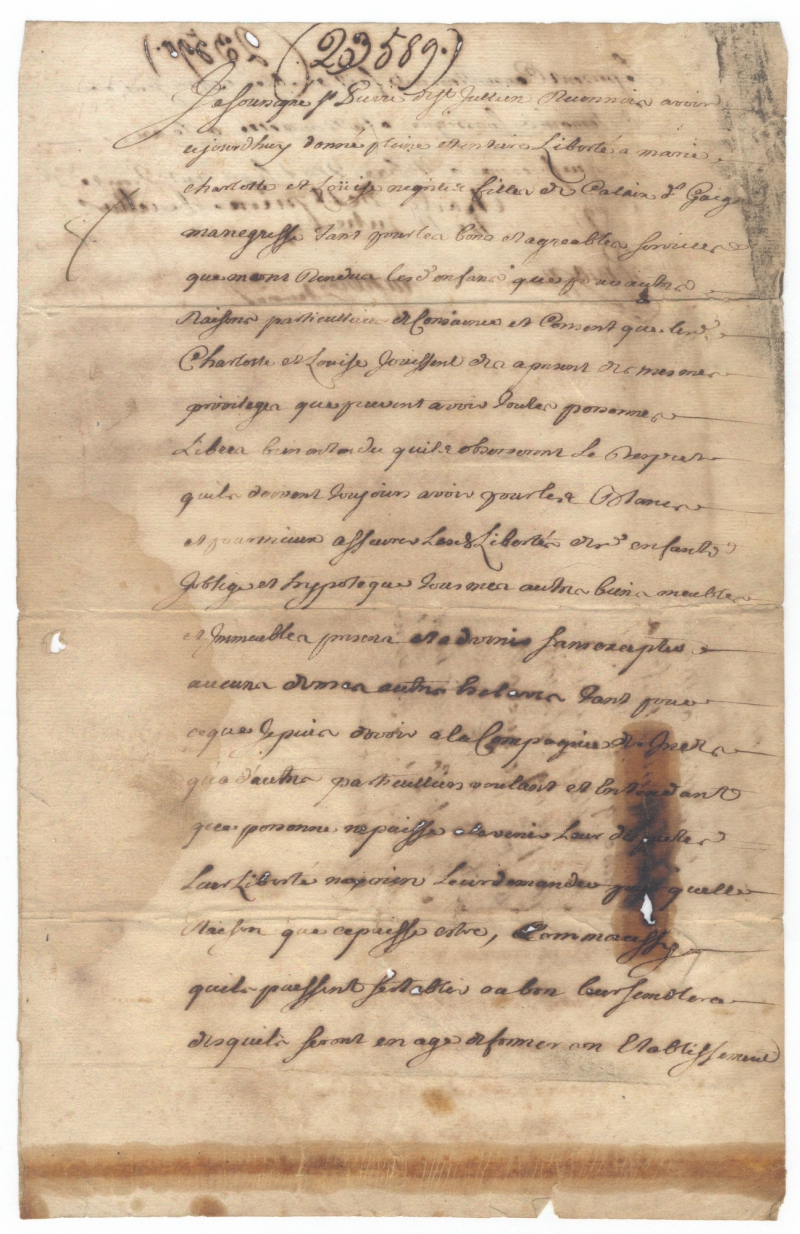 (23 589.)
Je Sousigne Sr Pierre dist Jullien Reconnois avoir
aujourdhuy donné pleine et entiere Liberté a marie
Charlotte et Loüise negrittes filles de
manegresse tant pour les bons et agreables services
que mont Rendus lesd. enfans que pr. autres
Raisons particullieres et Consent que lesd.
Charlotte et Louise Jouissent des apresent des mesmes
privileges que peuvent avoir toutes personnes
Libres bien entendu quils observeront Le Respect
quils doivent toujours avoir pour les
et pour mieux asseurer Lesd. Libertés des enfants
Joblige et hypoteque tous mes autres biens meubles
et Immeubles presens et advenir sans excepter
aucuns de mes autres Esclaves tant pour
ceque Je puis devoir a la Compagnie des Indes
qua d'autres particulliers voulant et Entendant
que personne ne puisse avenir Leur disputer
Leur Liberté ny rien Leur demander pour quelle
Raison que ce puisse estre, Comme aussy
quils puissent sestablir ou bon leur semblera
des quils seront en age de former un Etablissement